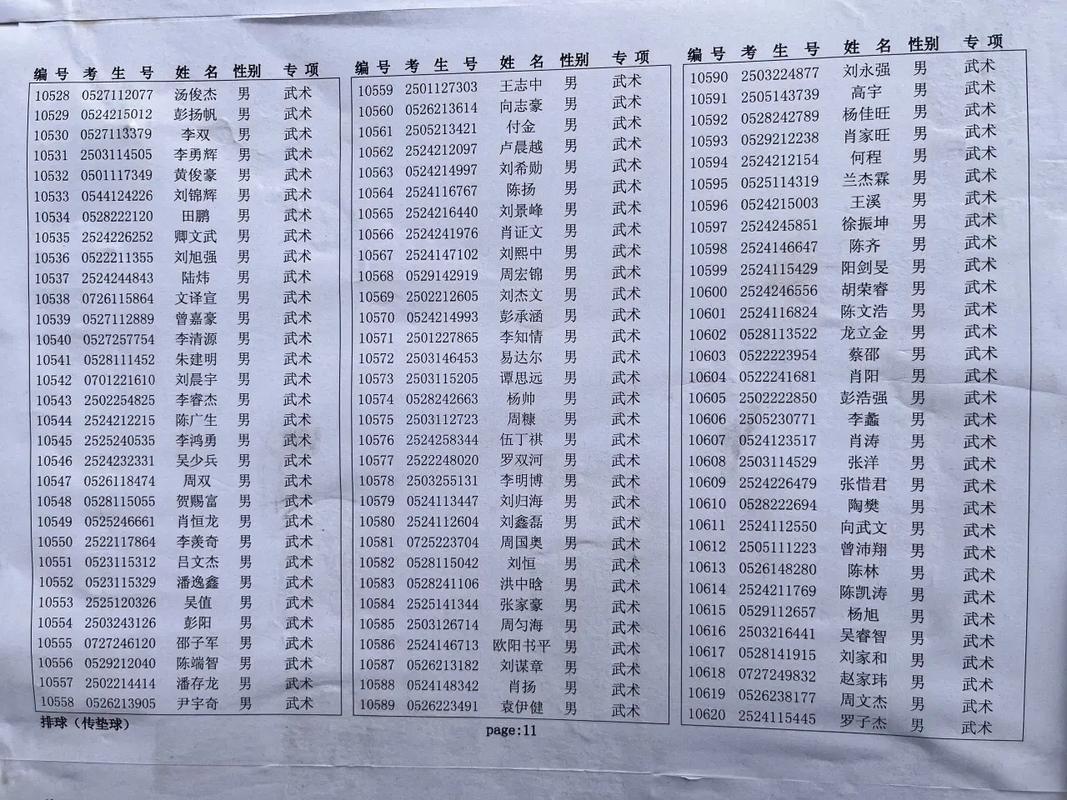 编号 考生号 姓名 性别 专项
10528 0527112077 汤俊杰 男 武术
10529 0524215012 彭扬帆 男 武术
10530 0527113379 李双 男 武术
10531 2503114505 李勇辉 男 武术
10532 0501117349 黄俊豪 男 武术
10533 0544124226 刘锦辉 男 武术
10534 0528222120 田鹏 男 武术
10535 2524226252 卿文武 男 武术
10536 0522211355 刘旭强 男 武术
10537 2524244843 陆炜 男 武术
10538 0726115864 文译宣 男 武术
10539 0527112889 曾嘉豪 男 武术
10540 0527257754 李清源 男 武术
10541 0528111452 朱建明 男 武术
10542 0701221610 刘晨宇 男 武术
10543 2502254825 李睿杰 男 武术
10544 2524212215 陈广生 男 武术
10545 2525240535 李鸿勇 男 武术
10546 2524232331 吴少兵 男 武术
10547 0526118474 周双 男 武术
10548 0528115055 贺赐富 男 武术
10549 0525246661 肖恒龙 男 武术
10550 2522117864 李羡奇 男 武术
10551 0523115312 吕文杰 男 武术
10552 0523115329 潘逸鑫 男 武术
10553 2525120326 吴值 男 武术
10554 2503243126 彭阳 男 武术
10555 0727246120 邵子军 男 武术
10556 0529212040 陈端智 男 武术
10557 2502214414 潘存龙 男 武术
10558 0526213905 尹宇奇 男 武术
编号 考生号 姓名 性别 专项
10559 2501127303 王志中 男 武术
10560 0526213614 向志豪 男 武术
10561 2505213421 付金 男 武术
10562 2524212097 卢晨越 男 武术
10563 0524214997 刘希勋 男 武术
10564 2524116767 陈扬 男 武术
10565 2524216440 刘景峰 男 武术
10566 2524241976 肖证文 男 武术
10567 2524147102 刘熙中 男 武术
10568 0529142919 周宏锦 男 武术
10569 2502212605 刘杰文 男 武术
10570 0524214993 彭承涵 男 武术
10571 2501227865 李知情 男 武术
10572 2503146453 易达尔 男 武术
10573 2503115205 谭思远 男 武术
10574 0528242663 杨帅 男 武术
10575 2503112723 周糠 男 武术
10576 2524258344 伍丁祺 男 武术
10577 2522248020 罗双河 男 武术
10578 2503255131 李明博 男 武术
10579 0524113447 刘归海 男 武术
10580 2524112604 刘鑫磊 男 武术
10581 0725223704 周国奥 男 武术
10582 0528115042 刘恒 男 武术
10583 0528241106 洪中晗 男 武术
10584 2525141344 张家豪 男 武术
10585 2503126714 周匀海 男 武术
10586 2524146713 欧阳书平 男 武术
10587 0526213182 刘谋章 男 武术
10588 0524148342 肖扬 男 武术
10589 0526223491 袁伊健 男 武术
编号 考生号 姓名 性别 专项
10590 2503224877 刘永强 男 武术
10591 2505143739 高宇 男 武术
10592 0528242789 杨佳旺 男 武术
10593 0529212238 肖家旺 男 武术
10594 2524212154 何程 男 武术
10595 0525114319 兰杰霖 男 武术
10596 0524215003 王溪 男 武术
10597 2524245851 徐振坤 男 武术
10598 2524146647 陈齐 男 武术
10599 2524115429 阳剑旻 男 武术
10600 2524246556 胡荣睿 男 武术
10601 2524116824 陈文浩 男 武术
10602 0528113522 龙立金 男 武术
10603 0522223954 蔡邵 男 武术
10604 0522241681 肖阳 男 武术
10605 2502222850 彭浩强 男 武术
10606 2505230771 李蠡 男 武术
10607 0524123517 肖涛 男 武术
10608 2503114529 张洋 男 武术
10609 2524226479 张惜君 男 武术
10610 0528222694 陶樊 男 武术
10611 2524112550 向武文 男 武术
10612 2505111223 曾沛翔 男 武术
10613 0526148280 陈林 男 武术
10614 2524211769 陈凯涛 男 武术
10615 0529112657 杨旭 男 武术
10616 2503216441 吴睿智 男 武术
10617 0528141915 刘家和 男 武术
10618 0727249832 赵家玮 男 武术
10619 0526238177 周文杰 男 武术
10620 2524115445 罗子杰 男 武术
排球（传垫球）
page:11